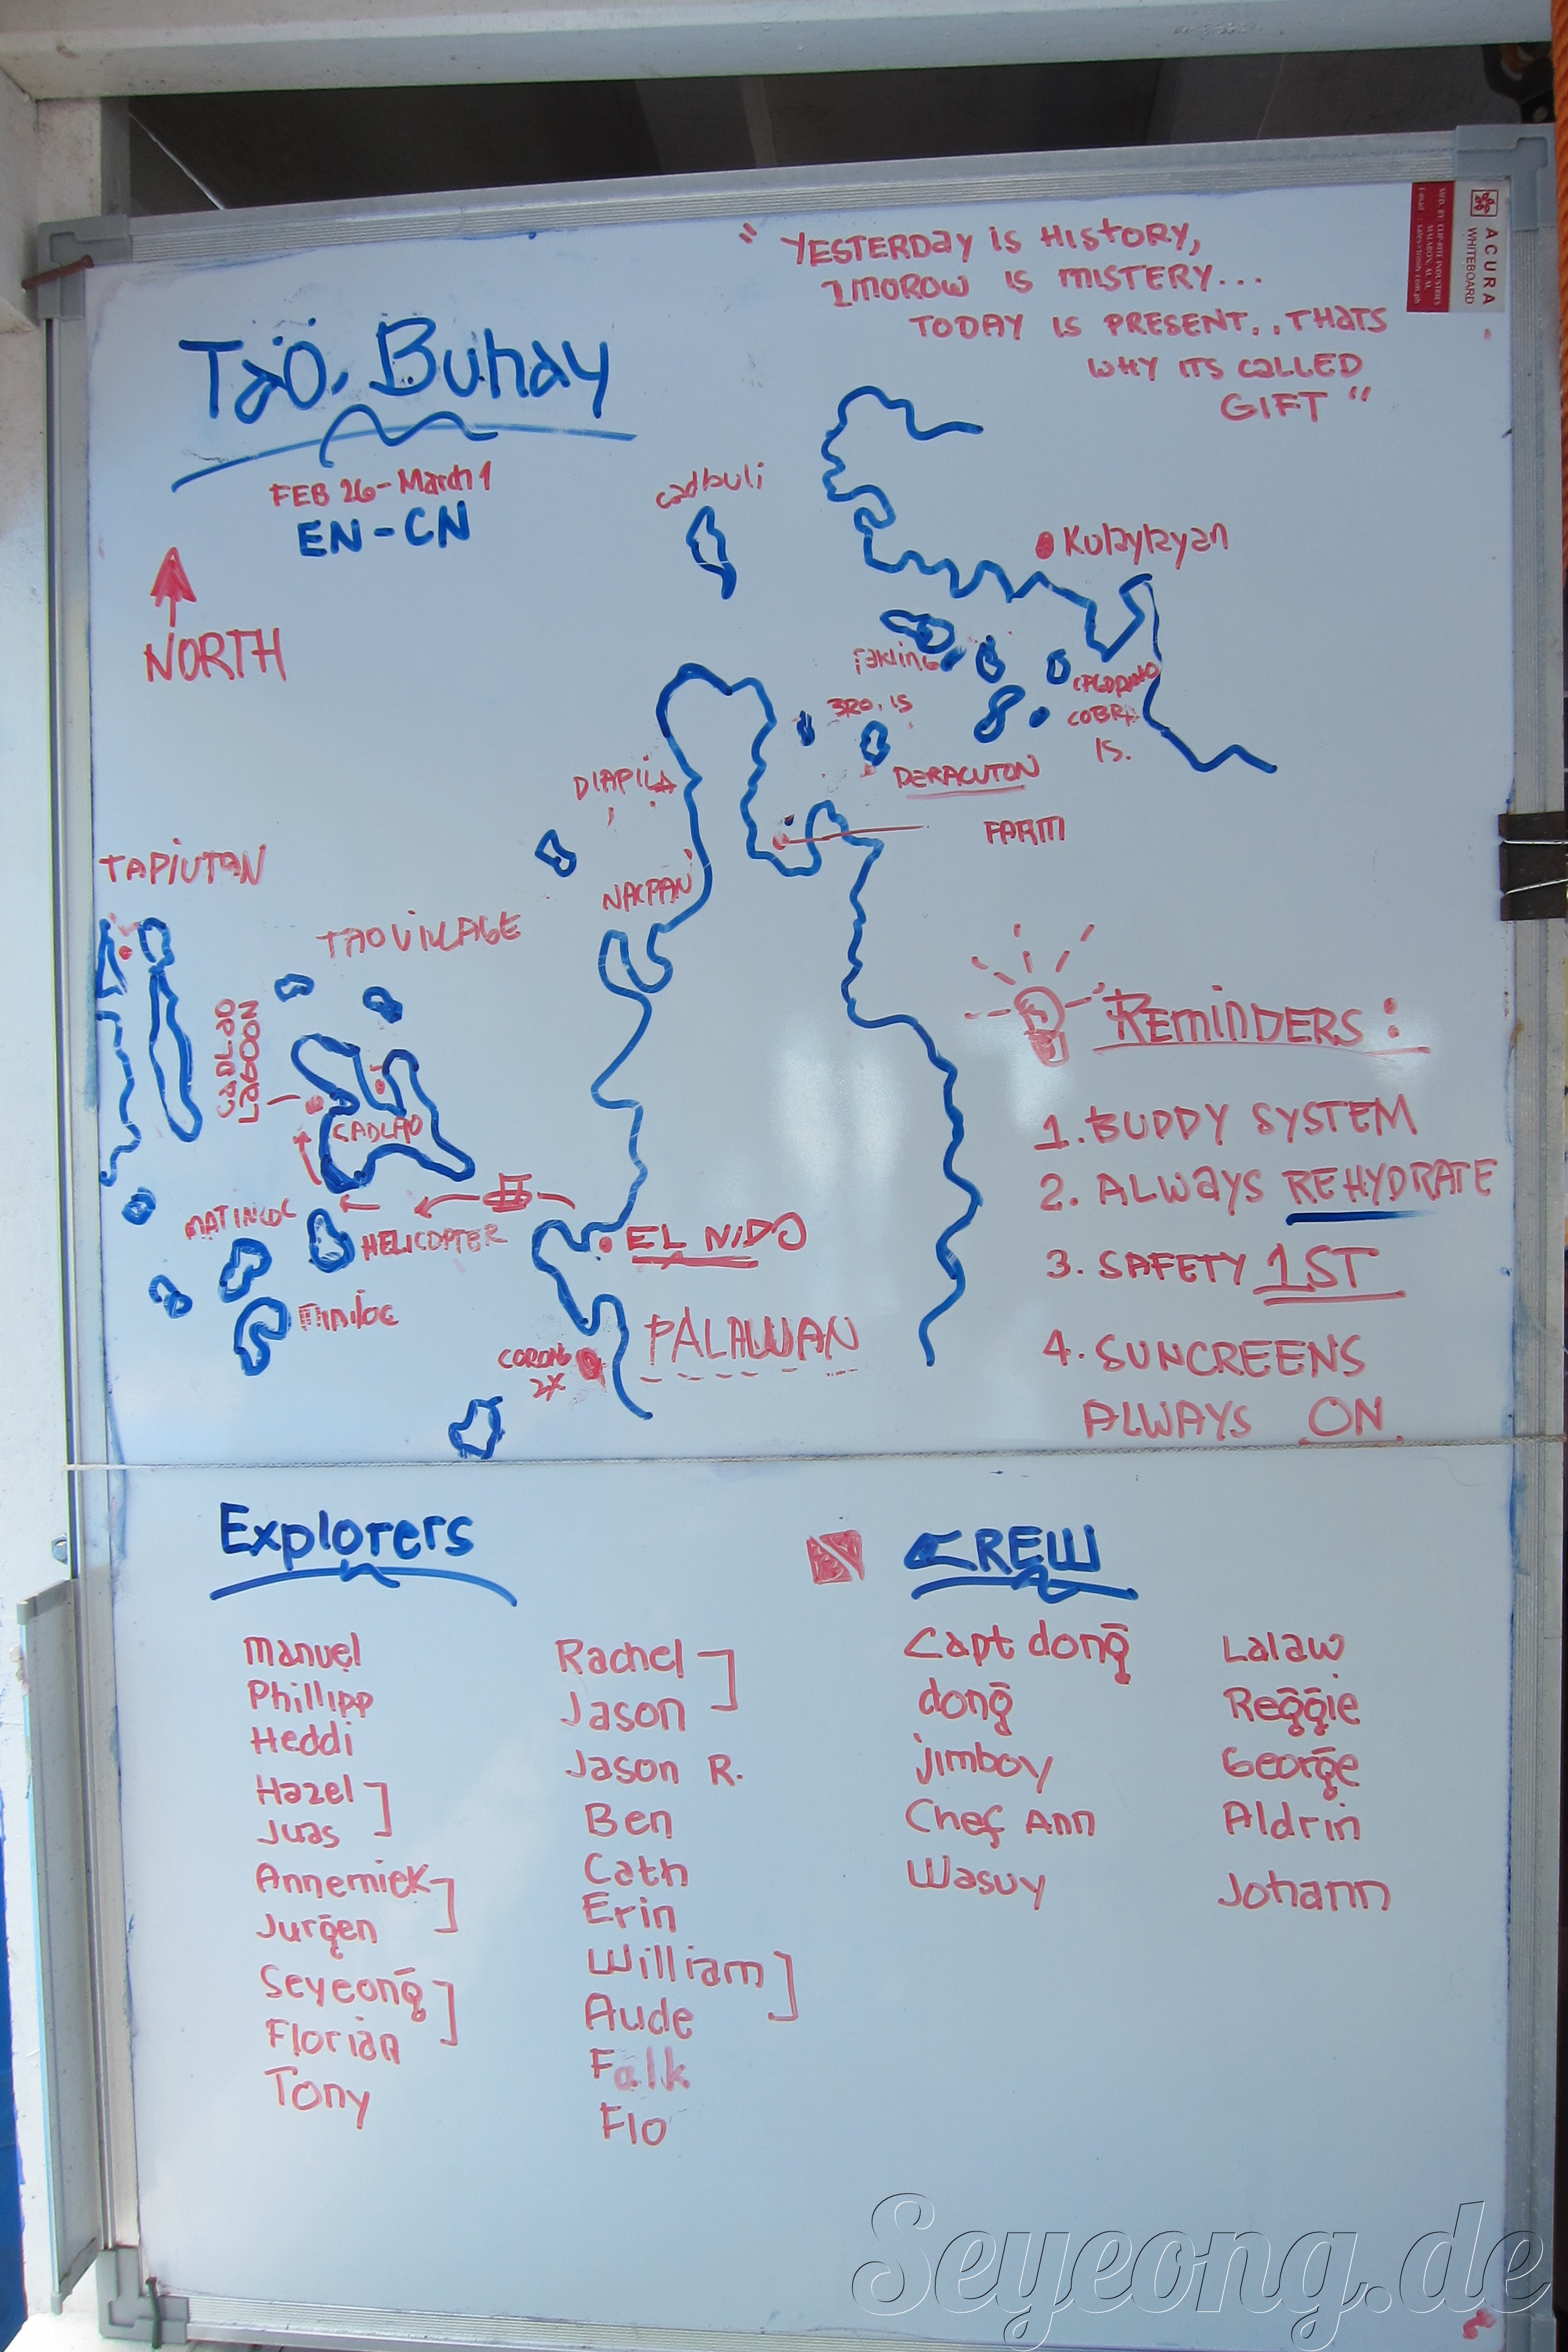 " YESTERDAY IS HISTORY,
2MOROW IS MISTERY...
TODAY IS PRESENT.. THATS
WHY ITS CALLED
GIFT "
ACURA
WHITEBOARD
MFD. BY: CLIP-RITE INDUSTRIES
Tao Buhay
FEB 26-March 1
EN-CN
NORTH
cadbuli
Kulaylayan
3RO. IS
COBRA
IS.
DIAPILA
DERACUTON
FARM
TAPIUTAN
NACPAN
TAO VILLAGE
CADLAO
LAGOON
CADLAO
MATINLOC
HELICOPTER
EL NIDO
miniloc
PALAWAN
CORONG
2X
REMINDERS:
1. BUDDY SYSTEM
2. ALWAYS REHYDRATE
3. SAFETY 1ST
4. SUNCREENS
ALWAYS ON
Explorers
Manuel
Phillipp
Heddi
Hazel
Juas
Annemiek
Jurgen
Seyeong
Florian
Tony
Rachel
Jason
Jason R.
Ben
Cath
Erin
William
Aude
Falk
Flo
CREW
Capt dong
dong
jimboy
Chef Ann
Wasuy
Lalaw
Reggie
George
Aldrin
Johann
Seyeong.de